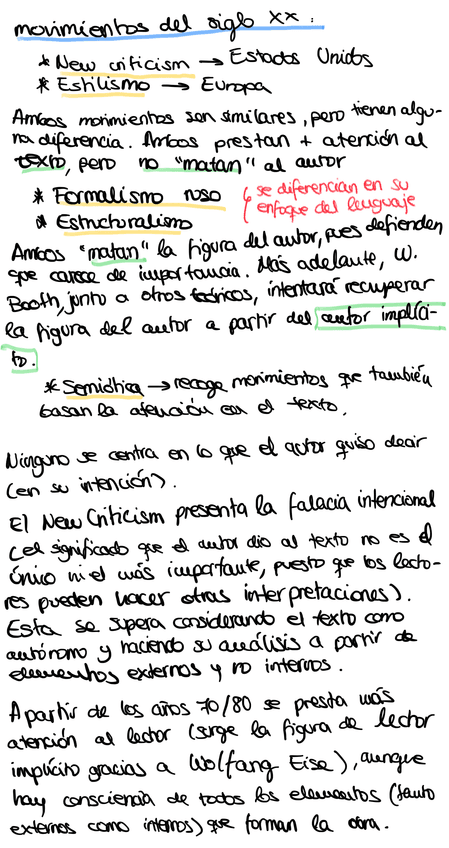 movimientos del siglo XX:
* New criticism → Estados Unidos
* Estilismo → Europa
Ambos movimientos son similares, pero tienen algu-
na diferencia. Ambos prestan + atención al
texto, pero no "matan" al autor
* Formalismo ruso
* Estructuralismo
se diferencian en su
enfoque del lenguaje
Ambos "matan" la figura del autor, pues defienden
que carece de importancia. Más adelante, W.
Booth, junto a otros teóricos, intentará recuperar
la figura del autor a partir del autor implíci-
to.
* Semiótica → recoge movimientos que también
basan la atención en el texto.
Ninguno se centra en lo que el autor quiso decir
(en su intención).
El New Criticism presenta la falacia intencional
(el significado que el autor dio al texto no es el
único ni el más importante, puesto que los lecto-
res pueden hacer otras interpretaciones).
Esta se supera considerando el texto como
autónomo y haciendo su análisis a partir de
elementos externos y no internos.
A partir de los años 70/80 se presta más
atención al lector (surge la figura de lector
implícito gracias a Wolfang Eise), aunque
hay consciencia de todos los elementos (tanto
externos como internos) que forman la obra.